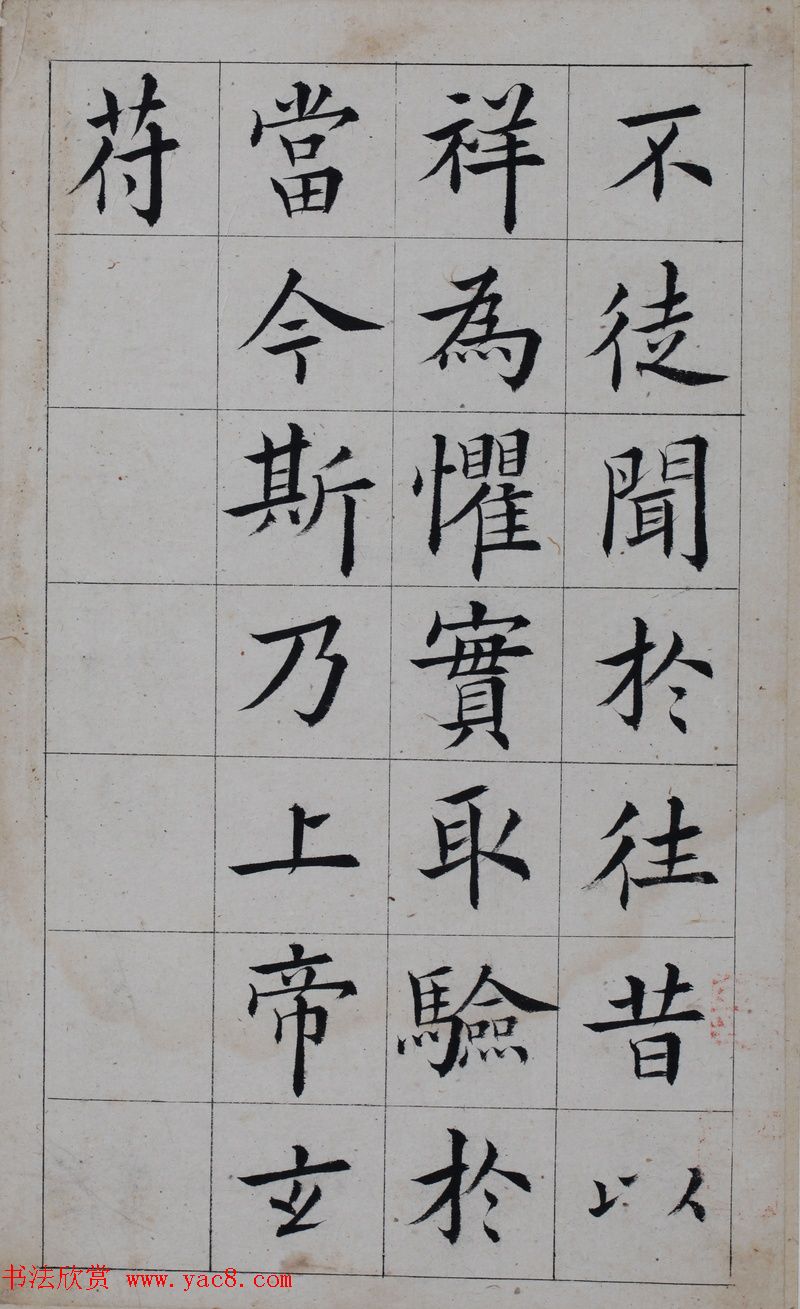 不徒聞於往昔以
祥為懼實取驗於
當今斯乃上帝玄
苻
书法欣赏 www.yac8.com